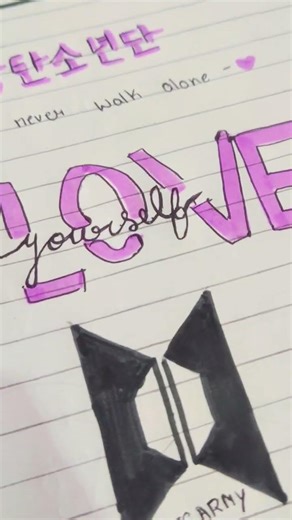 탄소년단
never walk alone -
LOVE
yourself
ARMY